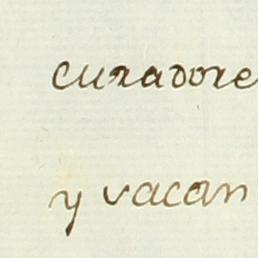 curadore
y vacan